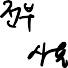 전부
사요